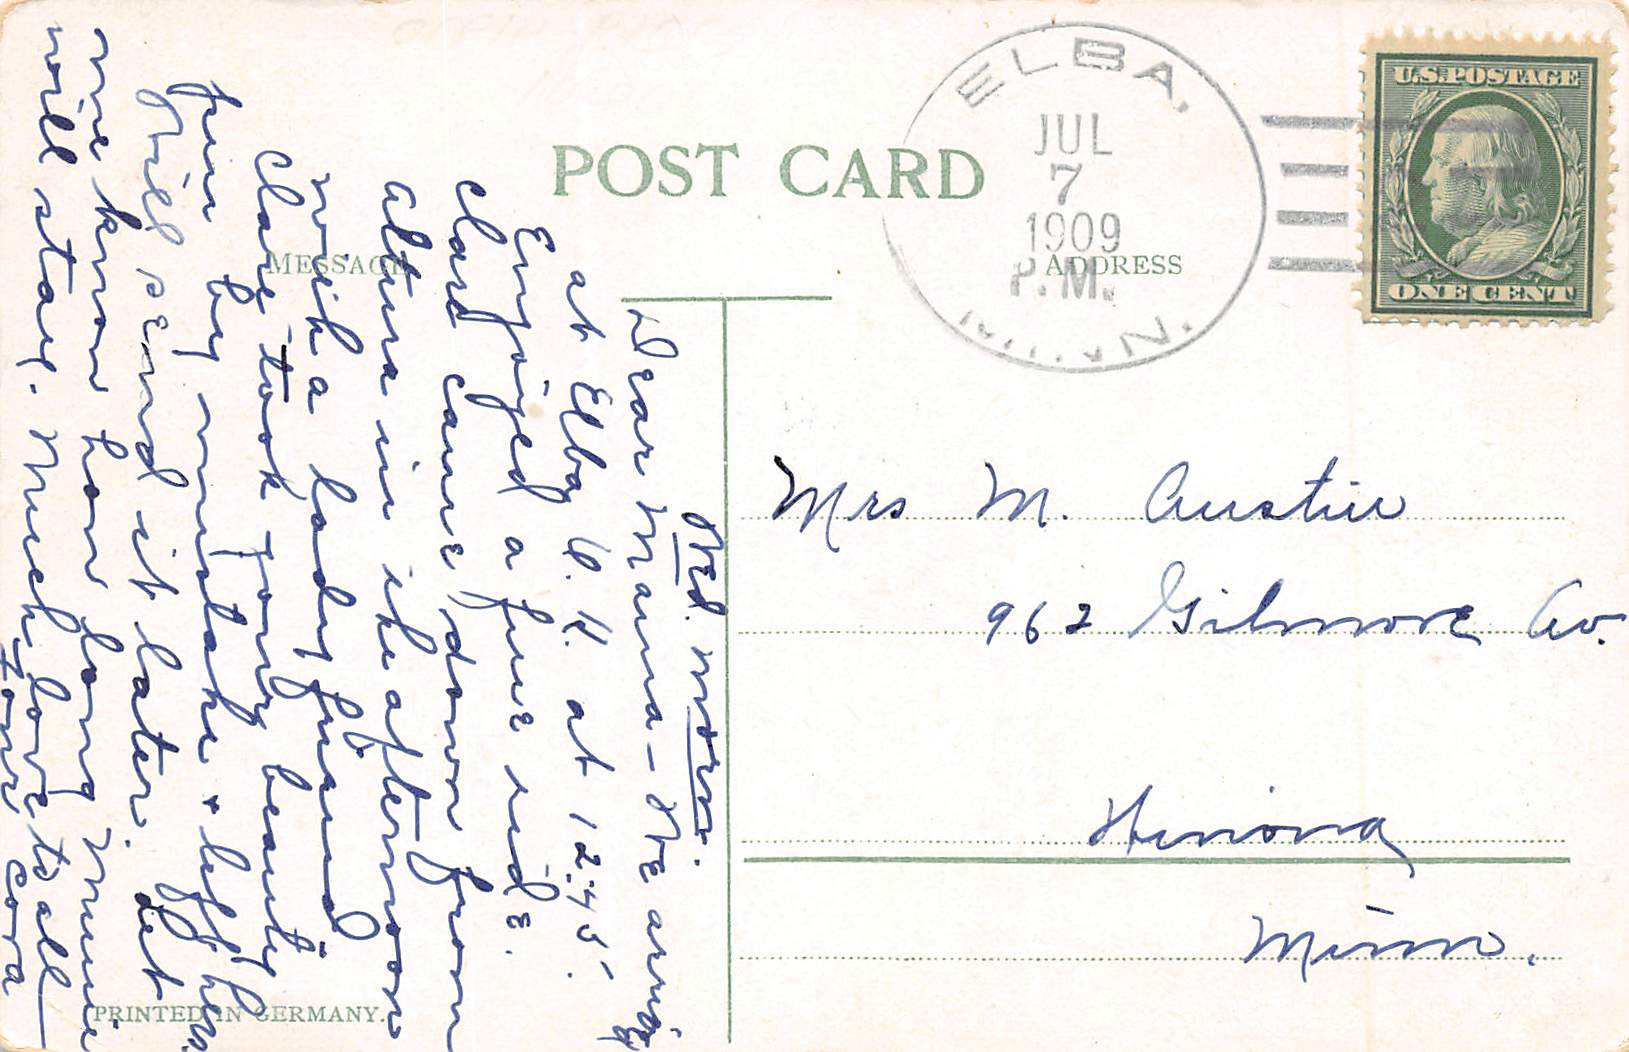 POST CARD
MESSAGE
ADDRESS
ELBA,
JUL
7
1909
P.M.
MINN.
U.S. POSTAGE
ONE CENT
Wed. morn.
Dear Mama - We arrived
at Elba O.K. at 12:45.
Enjoyed a fine ride.
Clara came down from
Altura in the afternoon
with a lady friend
Clare took your beauty
pin by mistake + left hers
Will send it later. Let
me know how long Minnie
will stay. Much love to all
Your Cora
Mrs M. Austin
962 Gilmore Av.
Winona,
Minn.
PRINTED IN GERMANY.